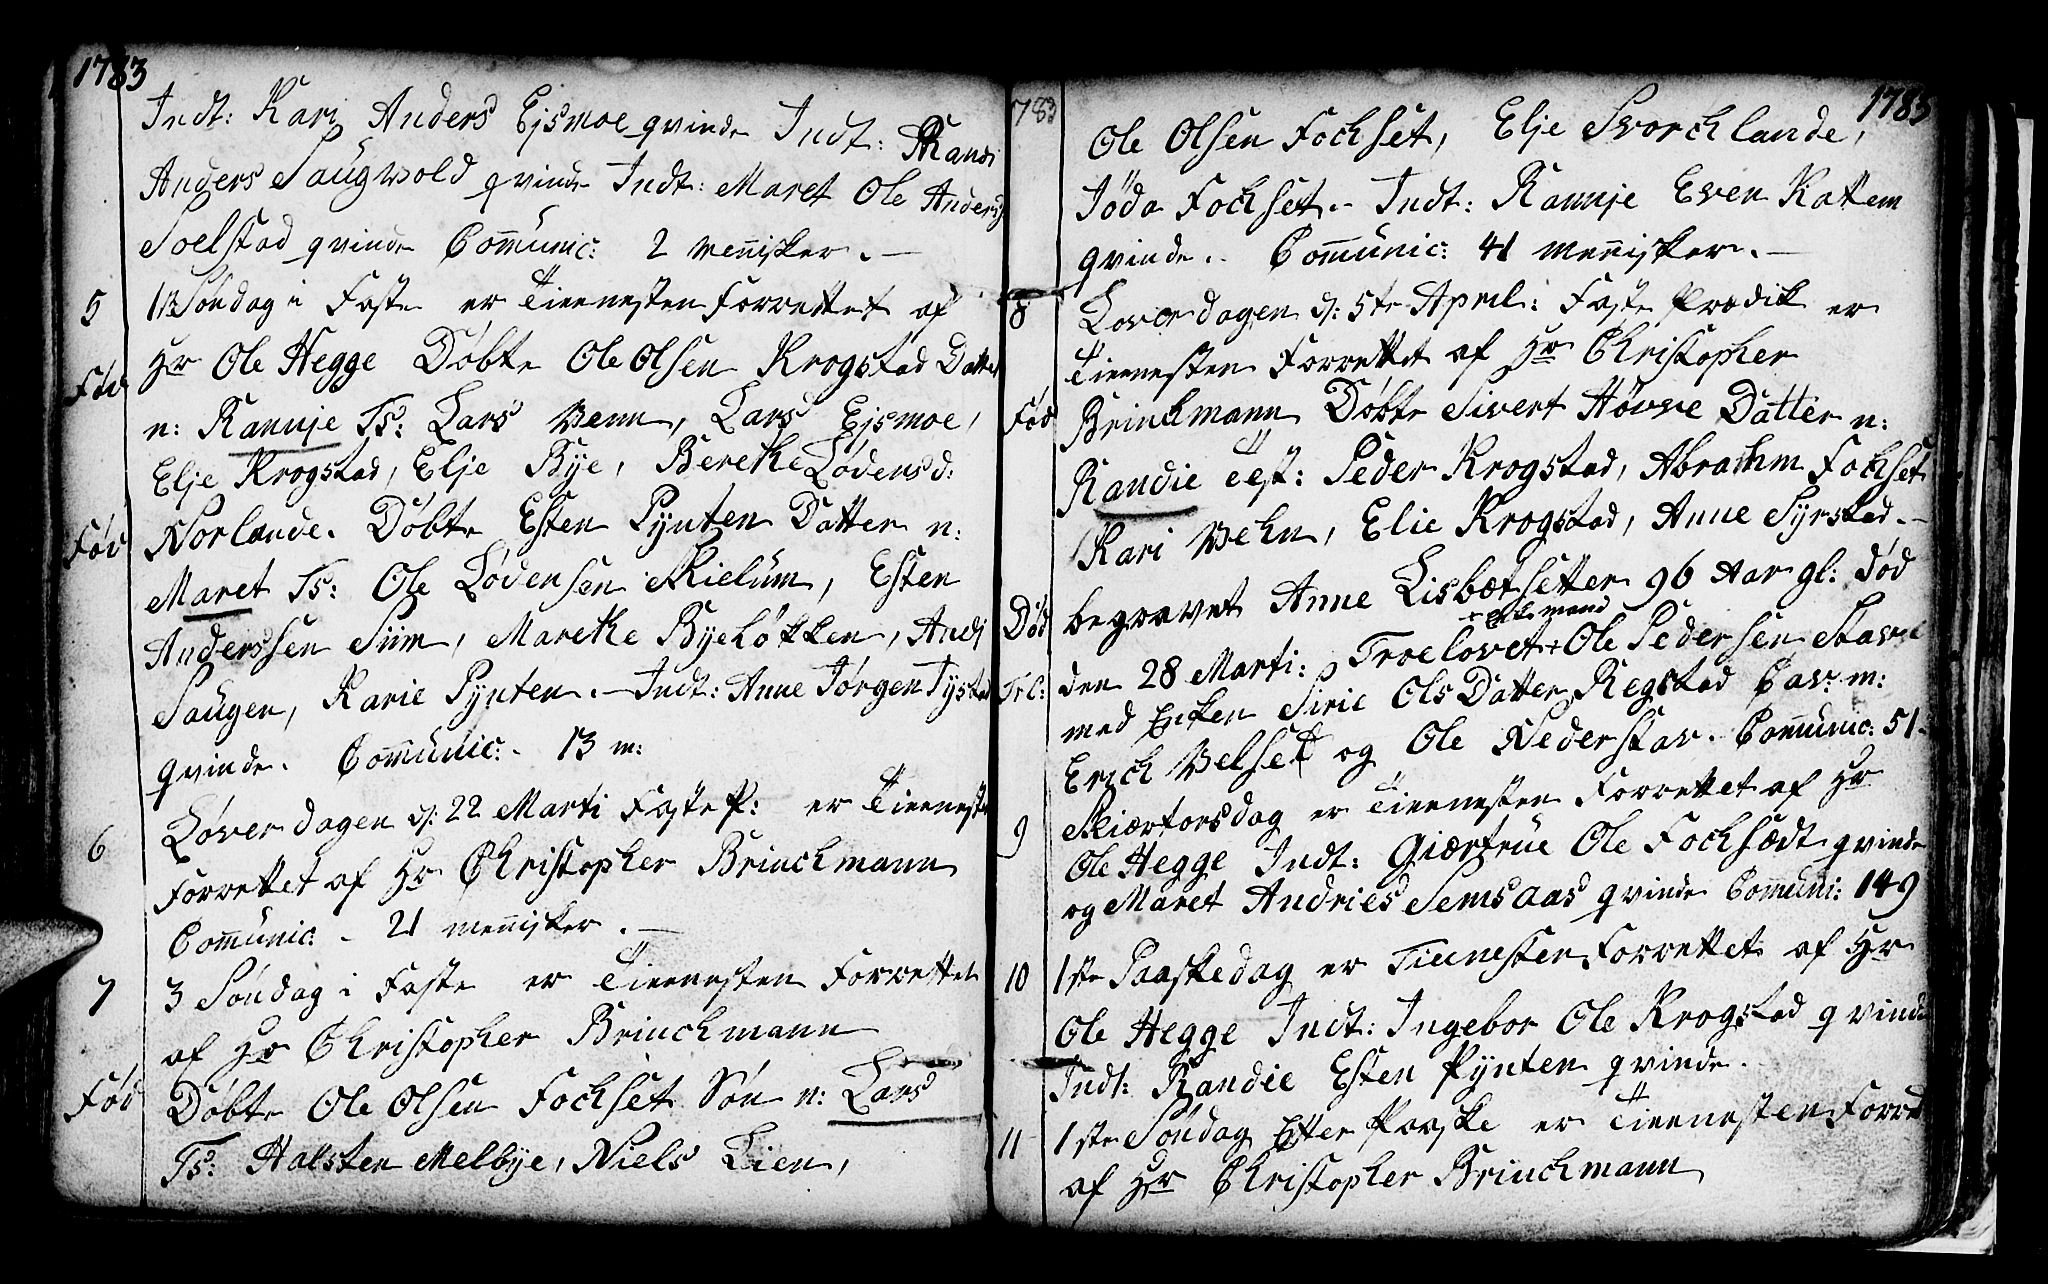 1783
Indt: Kari Anders Ejsmoe qvinde Indt: Randi
Anders Saugvold qvinde Indt: Maret Ole Anders
Soelstad qvinde Com̄unic: 2 men̄isker. —
5 1ste Søndag i Faste er Tieenesten Forrettet af
Hr Ole Hegge Døbte Ole Olsen Krogstad Datter
Fød
n: Rannje Ts: Lars Venn, Lars Ejsmoe,
Elje Krogstad, Elje Bye, Berethe Lødensd:
Fød Norlande. Døbte Esten Pynten Datter n:
Maret Ts: Ole Lødensen Skielum, Esten
Anderssen Sum, Marethe Byeløkken, Andj
Saugen, Karie Pynten. — Indt: Anne Jørgen Tystad
qvinde. Com̄unic: - 13 m:
6 Løverdagen d: 22 Marti Faste P: er Tieeneste
Forrettet af Hr Christopher Brinchmann
Com̄unic: - 21 men̄isker. —
7 3 Søndag i Faste er Tieenesten Forrettet
af Hr Christopher Brinchmann
Fød Døbte Ole Olsen Fochset Søn n: Lars
Ts: Halsten Melbye, Niels Lien,
783 1783
Ole Olsen Fochset, Elje Svorchlande,
Jøda Fochset. - Indt: Rannje Even Kattem
qvinde. . Com̄unic: 41 men̄isker. —
8 Løverdagen d: 5te April: Faste Prædik er
Tieenesten Forrettet af Hr Christopher
Fød Brinchmann Døbte Sivert Høvve Datter n:
Randie Test: Peder Krogstad, Abrachm Fochset
Kari Vehn, Elie Krogstad, Anne Syrstad. -
Død begravet Anne Lisbætsetter 96 Aar gl: død
+ Enkemand
den 28 Marti: Troelovet + Ole Pedersen Stavne
Trl: med Enken Sirie OlsDatter Regstad Cav: m:
Erich Velset og Ole Nederstav. Com̄unic: 51 -
9 Skiærtorsdag er Tieenesten Forrettet af Hr
Ole Hegge Indt: Giærtrue Ole Fochsædt qvinde
og Maret Andries Semsaas qvinde Com̄uni: 149
10 1ste Paaskedag er Tienesten Forrettet af Hr
Ole Hegge Indt: Ingebor Ole Krogstad qvinde
Indt: Randie Esten Pynten qvinde.
11 1ste Søndag Efter Paaske er Tieenesten Forret
af Hr Christopher Brinchmann